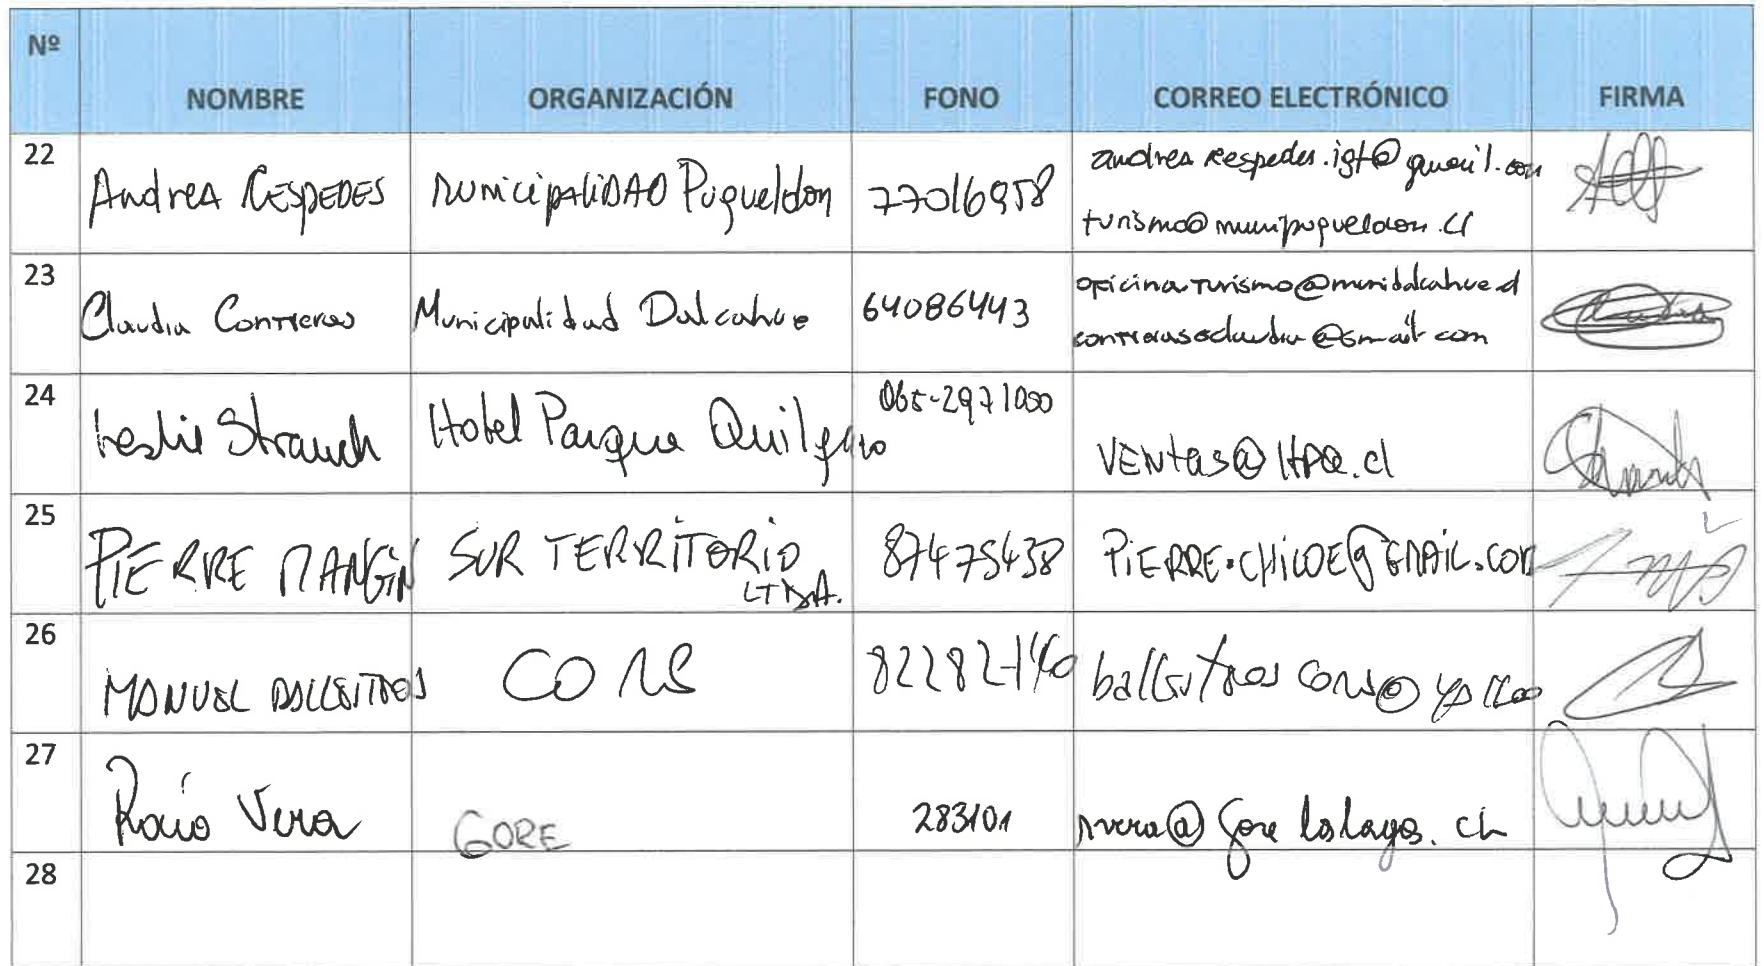 Nº NOMBRE ORGANIZACIÓN FONO CORREO ELECTRÓNICO FIRMA
22 Andrea Cespedes Municipalidad Puqueldon 77016958 andrea.cespedes.igt@gmail.com
turismo@munipuqueldon.cl
23 Claudia Contreras Municipalidad Dalcahue 64086443 oficinaturismo@munidalcahue.cl
@Gmail.com
24 Leslie Strauch Hotel Parque Quilquico 065-2971000 VENtas@HPQ.cl
25 PIERRE MANGIN SUR TERRITORIO LTDA. 87475438 PIERRE.CHILOE@GMAIL.COM
26 MANUEL BALLESTEROS
27 Rocío Vera GORE 283101 rvera@goreloslagos.cl
28